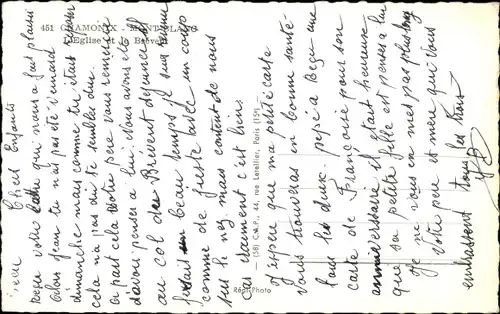 451 CHAMONIX - MONT-BLANC
L'Eglise et le Brévent
Chers Enfants
reçu votre lettre qui nous a fait plaisir
alors Jean tu n'as pas été
dimanche mais comme tu étais
cela n'a pas dû te sembler dur
a part cela votre père vous remercie
d'avoir penser a lui. nous avons été
au col du Brevent dimanche
fesait un beau temps je suis
comme de juste avec un coup
sur le nez mais content de nous
car vraiment c'est bien
j'espère que ma petite carte
vous trouveras en bonne santé
tous les deux. pépé a reçu une
carte de Françoise pour son
anniversaire il était heureux
que sa petite fille est penser a lui
je ne vous en mes pas plus long
Votre père et mère qui vous
embrassent tous les trois
(58) C.A.P., 44, rue Letellier, Paris (15e)
Réal-Photo